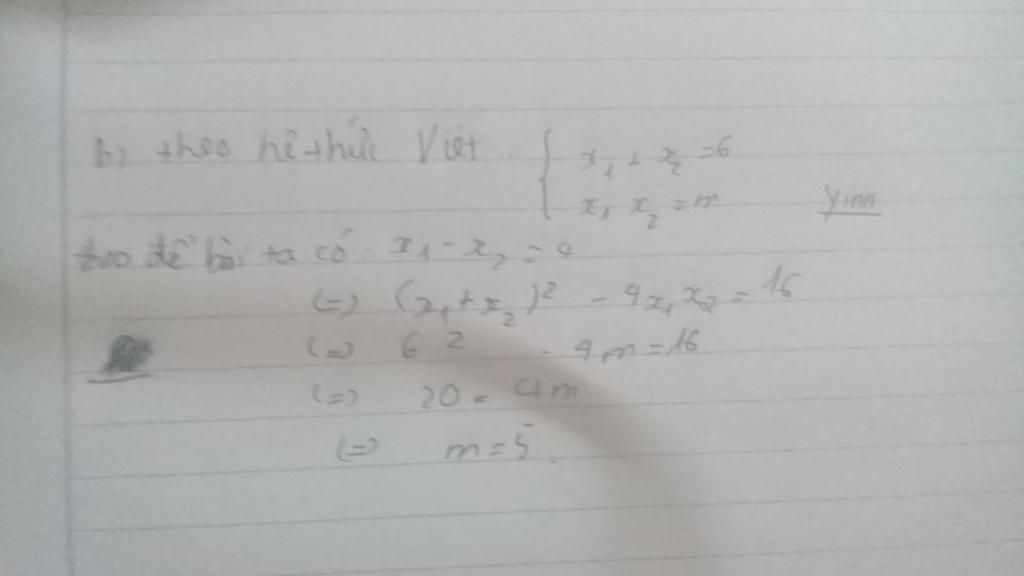 b, theo hệ thức Viét { x₁ + x₂ = 6
x₁ x₂ = m Yinn
theo đề bài ta có x₁ - x₂ = 4
(=) (x₁ + x₂)² - 4x₁x₂ = 16
(=) 6² - 4m = 16
(=) 20 = 4m
(=) m = 5.